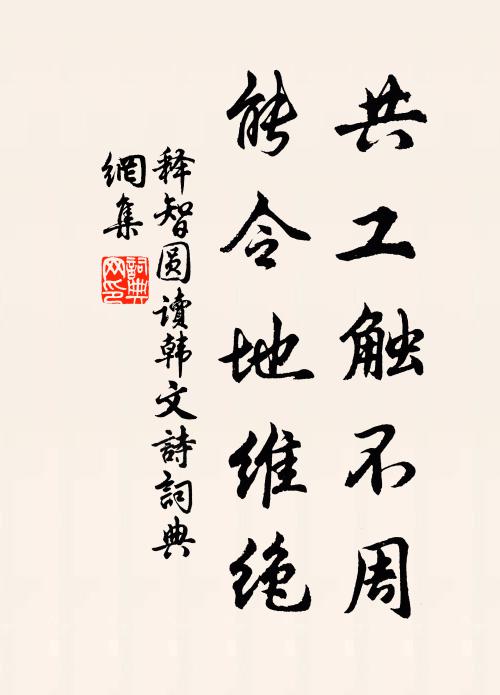 共工触不周
能令地维绝
释智圆读韩文詩詞典
網集
詞典網印